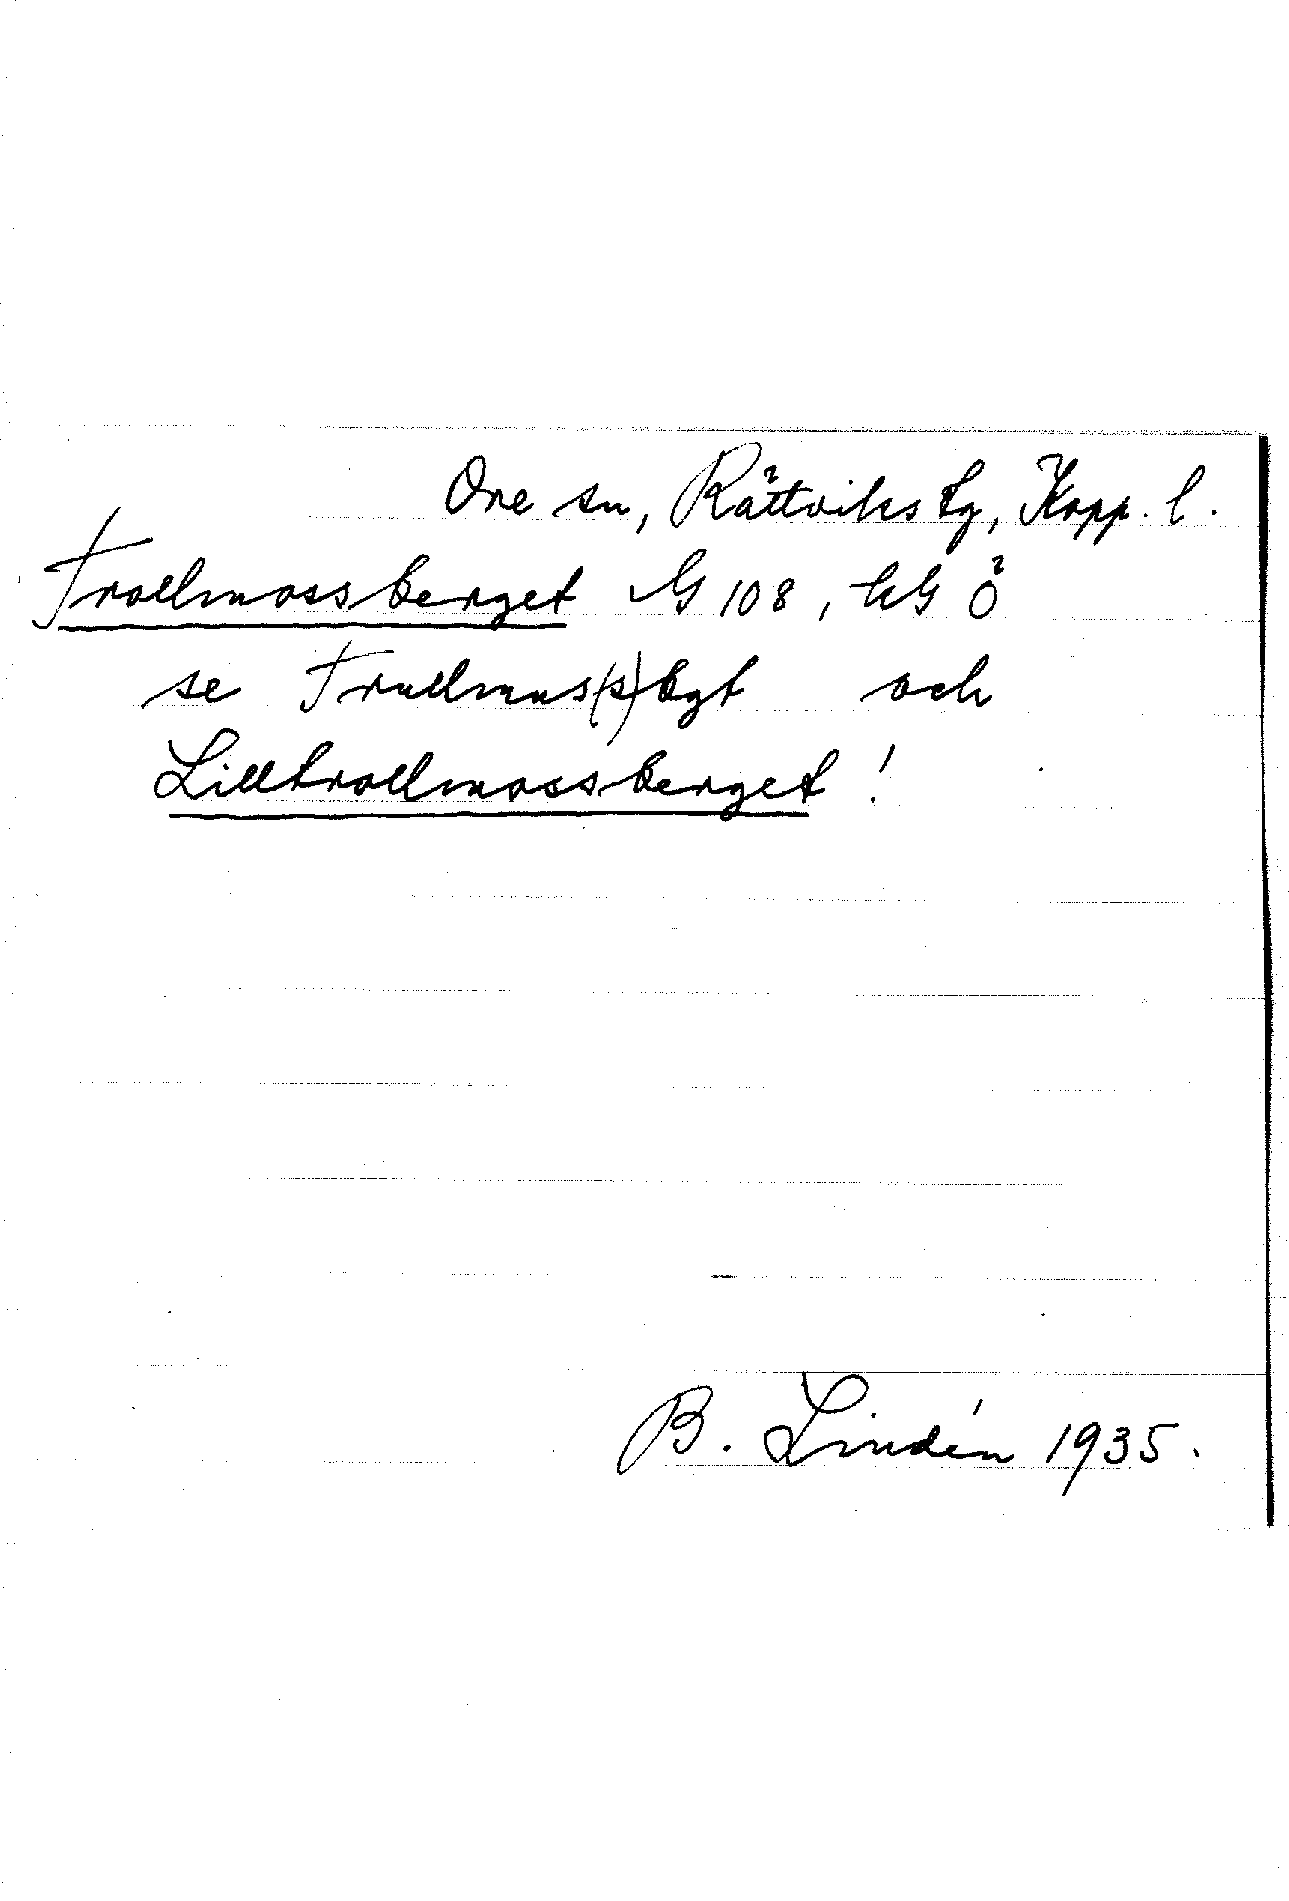 Ore sn, Rättviks tg, Kopp. l.
Trollmossberget G 108, hG Ö
se Trullmus(s)bgt och
Lilltrollmossberget!
B. Lindén 1935.